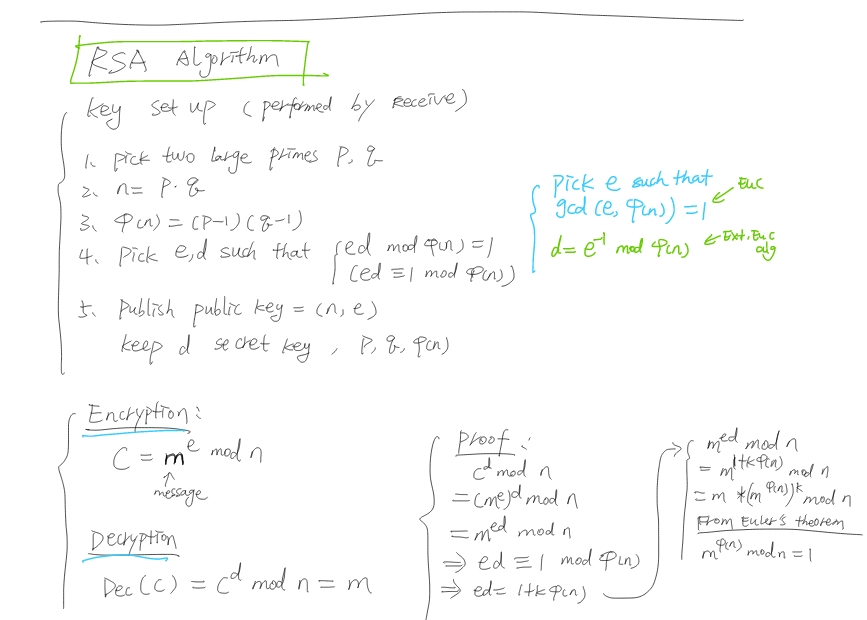 RSA Algorithm
key set up (performed by receive)
1. pick two large primes P, q
2. n = P · q
3. φ(n) = (P-1)(q-1)
4. Pick e,d such that { ed mod φ(n) = 1
(ed ≡ 1 mod φ(n))
5. Publish public key = (n, e)
keep d secret key, P, q, φ(n)
pick e such that
gcd(e, φ(n)) = 1 ← Euc
d = e⁻¹ mod φ(n) ← Ext. Euc alg
Encryption:
C = m^e mod n
↑
message
Decryption
Dec(C) = C^d mod n = m
Proof:
C^d mod n
= (m^e)^d mod n
= m^ed mod n
⇒ ed ≡ 1 mod φ(n)
⇒ ed = 1+kφ(n)
m^ed mod n
= m^(1+kφ(n)) mod n
= m *(m^φ(n))^k mod n
From Euler's theorem
m^φ(n) mod n = 1